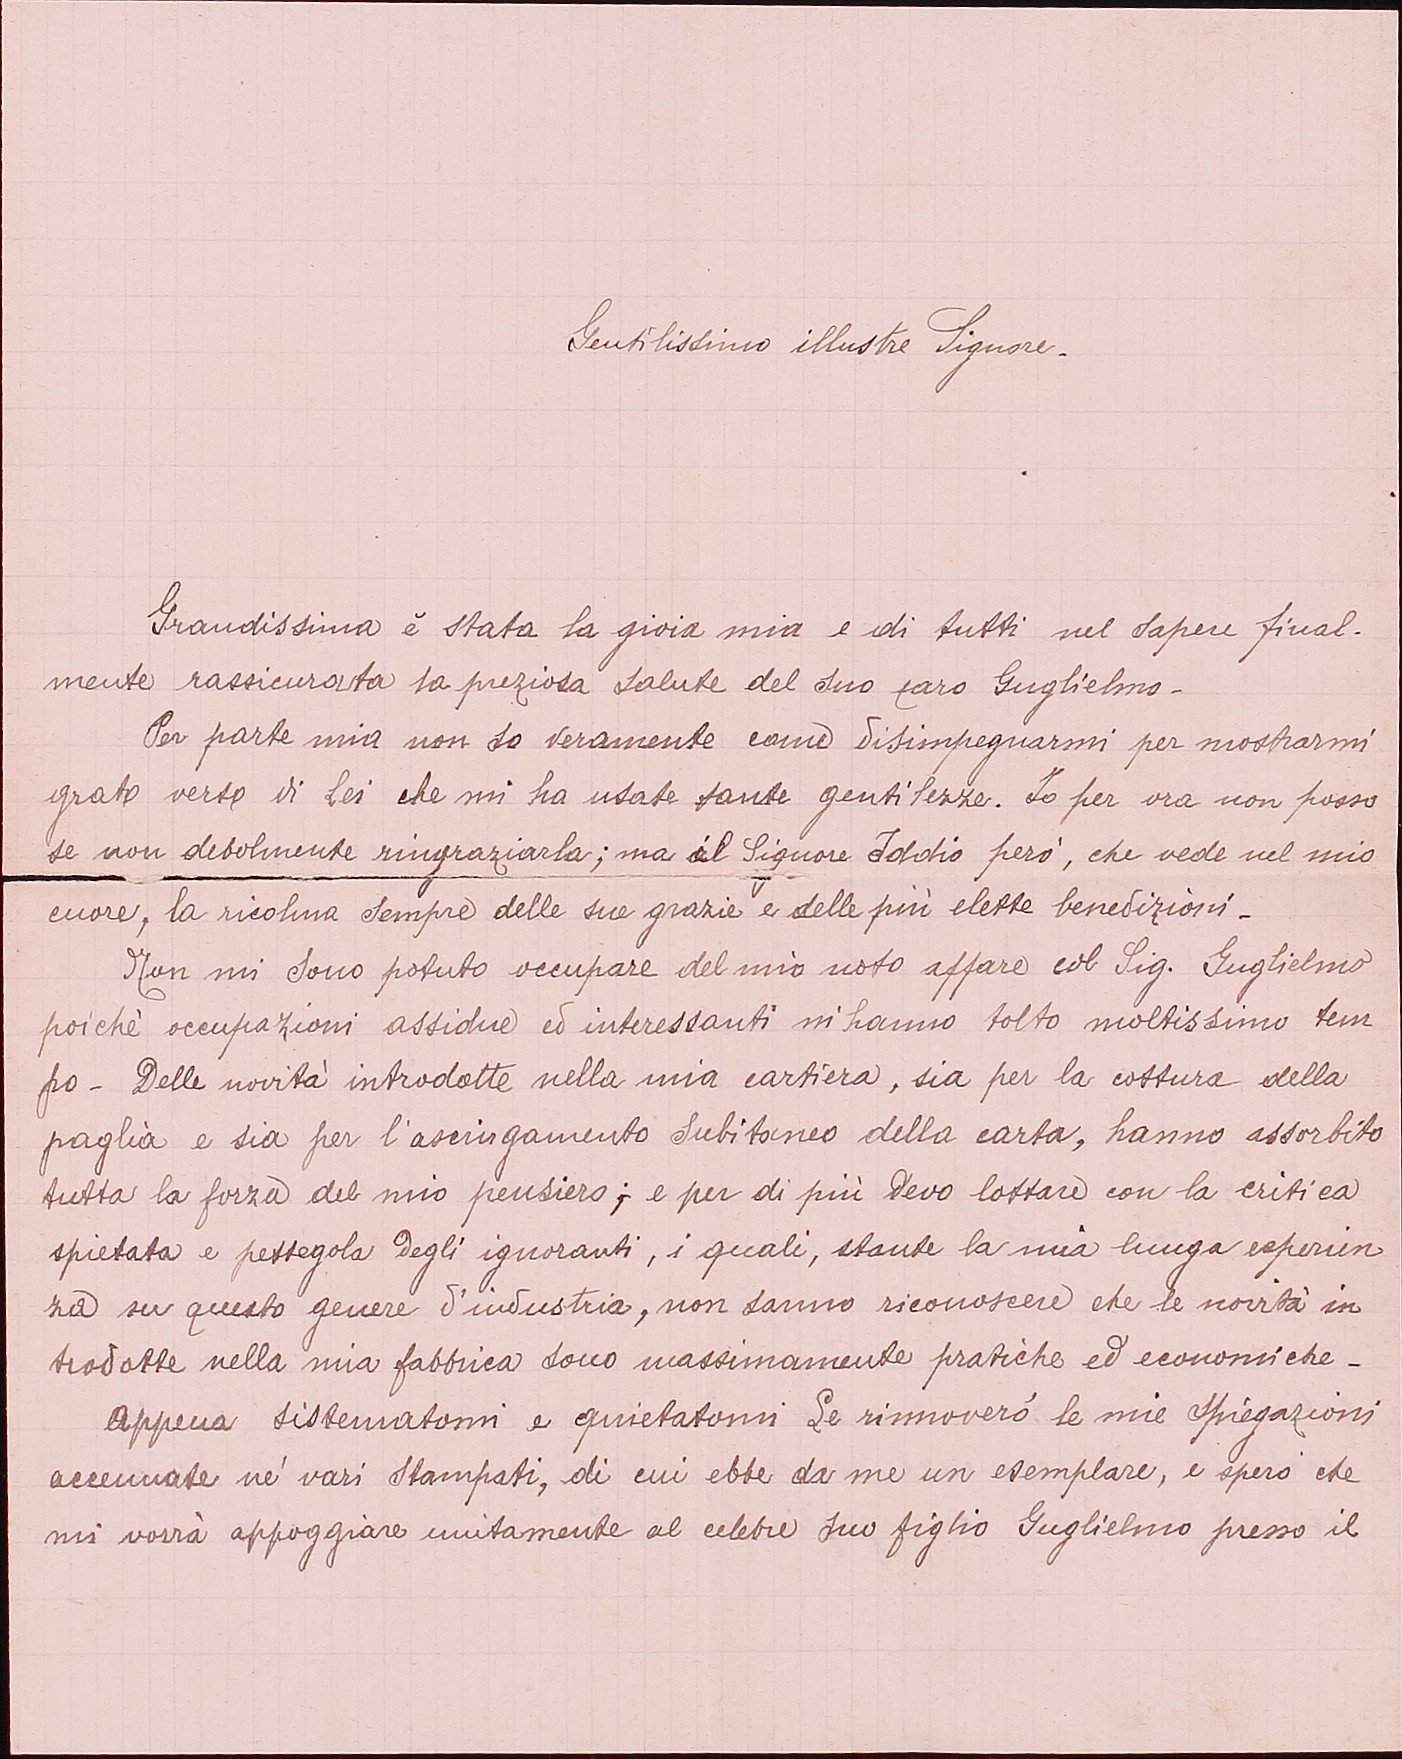 Gentilissimo illustre Signore.
Grandissima è stata la gioia mia e di tutti nel sapere final-
mente rassicurata la preziosa salute del suo caro Guglielmo -
Per parte mia non so veramente come disimpegnarmi per mostrarmi
grato verso di Lei che mi ha usate tante gentilezze. Io per ora non posso
se non debolmente ringraziarla; ma il Signore Iddio però, che vede nel mio
cuore, la ricolma sempre delle sue grazie e delle più elette benedizioni -
Non mi sono potuto occupare del mio noto affare col Sig. Guglielmo
poichè occupazioni assidue ed interessanti mi hanno tolto moltissimo tem
po - Delle novità introdotte nella mia cartiera, sia per la cottura della
paglia e sia per l'asciugamento subitaneo della carta, hanno assorbito
tutta la forza del mio pensiero; e per di più devo lottare con la critica
spietata e pettegola degli ignoranti, i quali, stante la mia lunga esperien
za su questo genere d'industria, non sanno riconoscere che le novità in
trodotte nella mia fabbrica sono massimamente pratiche ed economiche -
Appena sistematomi e quietatomi Le rinnoverò le mie spiegazioni
accennate ne' vari stampati, di cui ebbe da me un esemplare, e spero che
mi vorrà appoggiare unitamente al celebre suo figlio Guglielmo presso il